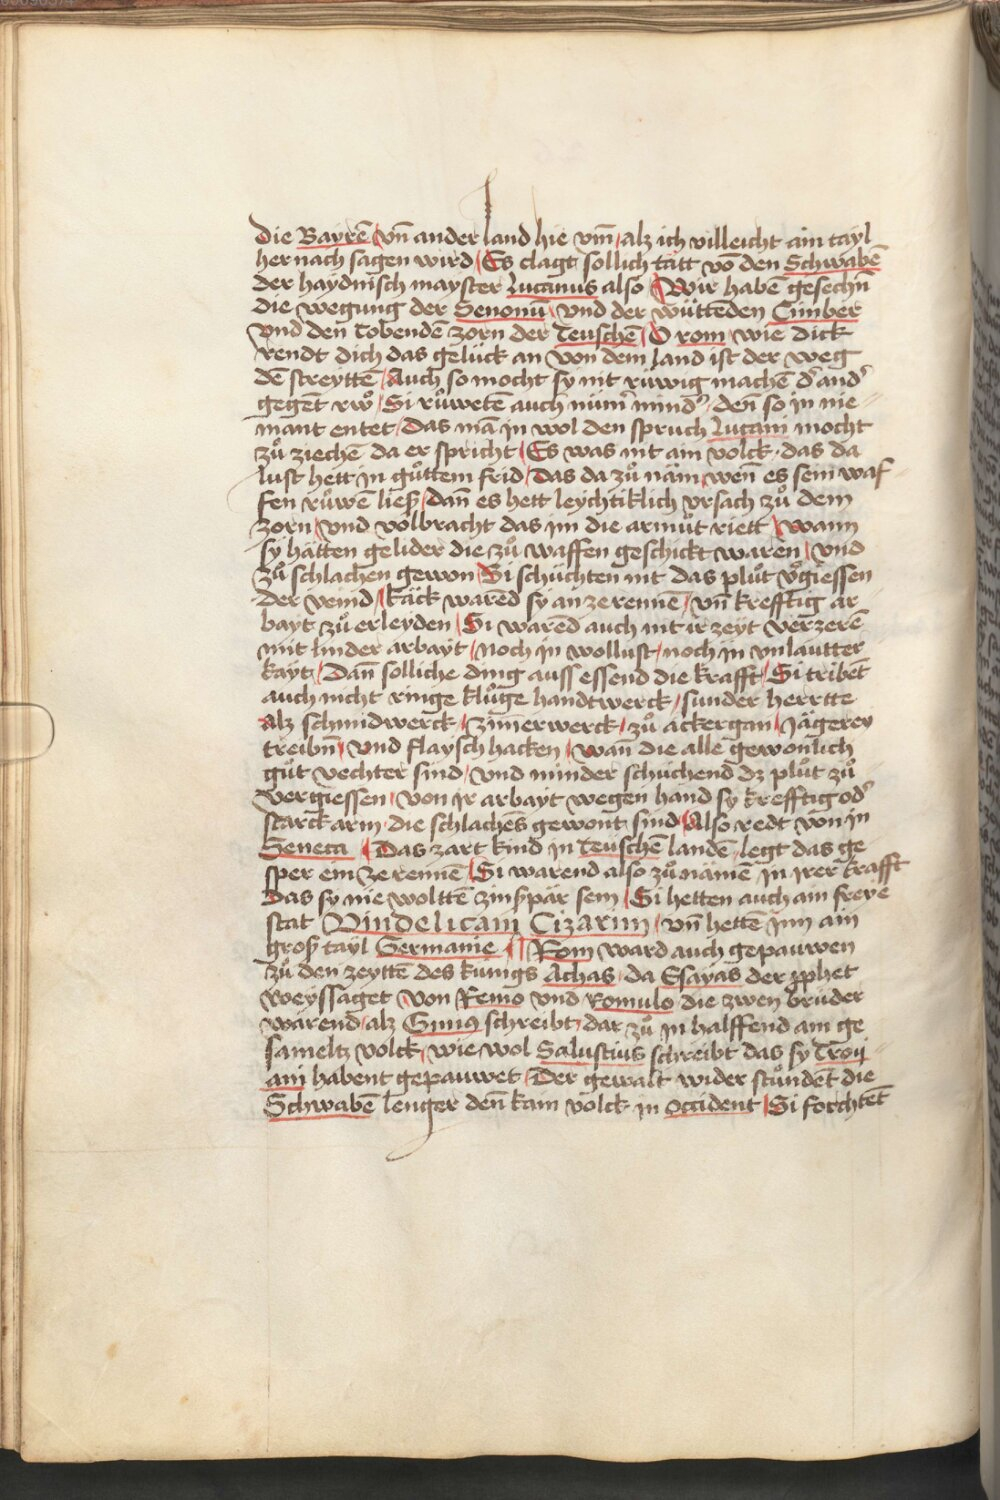 die Bayrē / vn̄ ander land hie vm̄ / alz ich villeicht ain tayl
her nach sagen wird / Es clagt sollich tätt vō den Schwabē
der haydnisch mayster Lucanus also / Wir habē gesechn̄
die wegung der Senonū / vnd der wüttēden Cimber
vnd den tobendē zorn der Teuschē / O rom / wie dick
rendt dich das gelück an von dem land ist der weg
dē streyttē / Auch so mocht sy nit rüwig machē dʾ andʾ
gegēt rwͦ / Si růwetē auch nūmʾ mindʾ / den̄ so in nie=
mant entet / Das mā in wol den spruch Lucani mocht
zů ziechē da er spricht / Es was nit ain volck / das da
lust hett in gůttem frid / Das da zů näm / wen̄ es sein waf=
fen růwē liesz / dan̄ es hett leychtiklich vrsach zů dem
zorn / vnd volbracht das im die armůt riett / wann
sy hätten gelider die zů waffen geschickt waren / vnd
zů schlachen gewon / Si schüchten nit das plůt vʾgiessen
der veind / käck warēd sy an ze rennē / vn̄ krefftig ar=
bayt zů erleyden / Si warēd auch nit ir zeyt verzerē
mit linder arbayt / noch in wollust / noch in vnlautter
kayt / Dan̄ solliche ding auss essend die krafft / Si tribēt
auch nicht ringe klůge handtwerck / sunder herrtte
Alz schmidwerck / zim̄erwerck / zů ackergan / Jägerey
treibn̄ / vnd flaysch hacken / wan̄ die alle gewonlich
gůt vechter sind / vnd minder schüchend dz plůt zů
vergiessen / von ir arbayt wegen hand sy krefftig odʾ
starck arm / die schlachēs gewont sind / Also redt von in
Seneca / Das zart kind in Teuschē landē / legt das ge
sper ein ze rennē / Si warend also zů nämē in irer krafft
das sy nie wolttē zinszpär sein / Si hetten auch ain freye
stat Vindelicam Cizarim / vn̄ hettē inn ain
grosz tayl Germanie / Rom ward auch gepauwen
zů den zeyttē des künigs Achas / da Esayas der ꝓphet
weyssaget / von Remo vnd Romulo die zwen brüder
warend / alz Ginus schreibt / dar zů in halffend ain ge
sameltz volck / wie wol Salustius schreibt das sy Troy=
ani habent gepauwet / Der gewalt wider stůndēt die
Schwabē lenger den̄ kain volck in occident / Si forchtēt